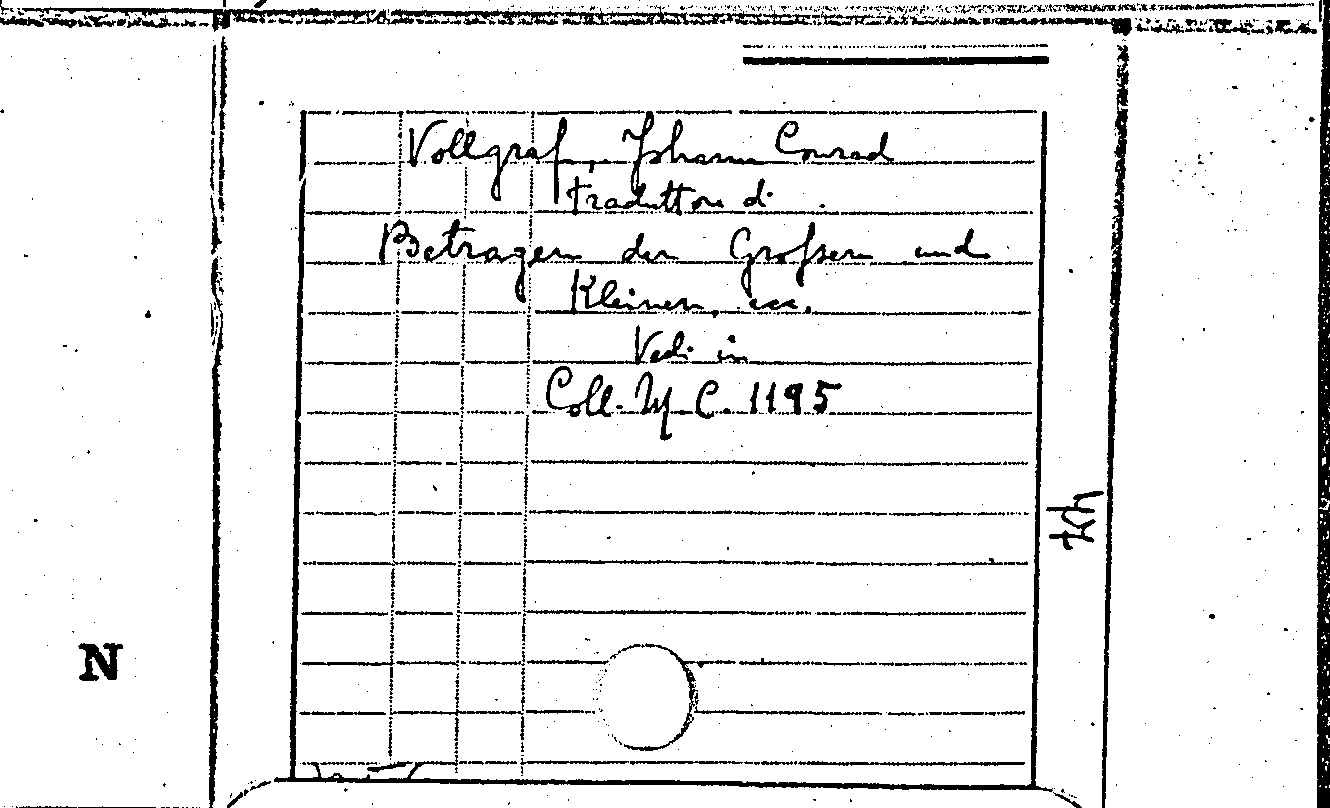 Vollgraf, Johann Conrad
traduttore di
Betragen der Großen und
Kleinen, ecc.
Vedi in
Coll. M. C. 1195
N